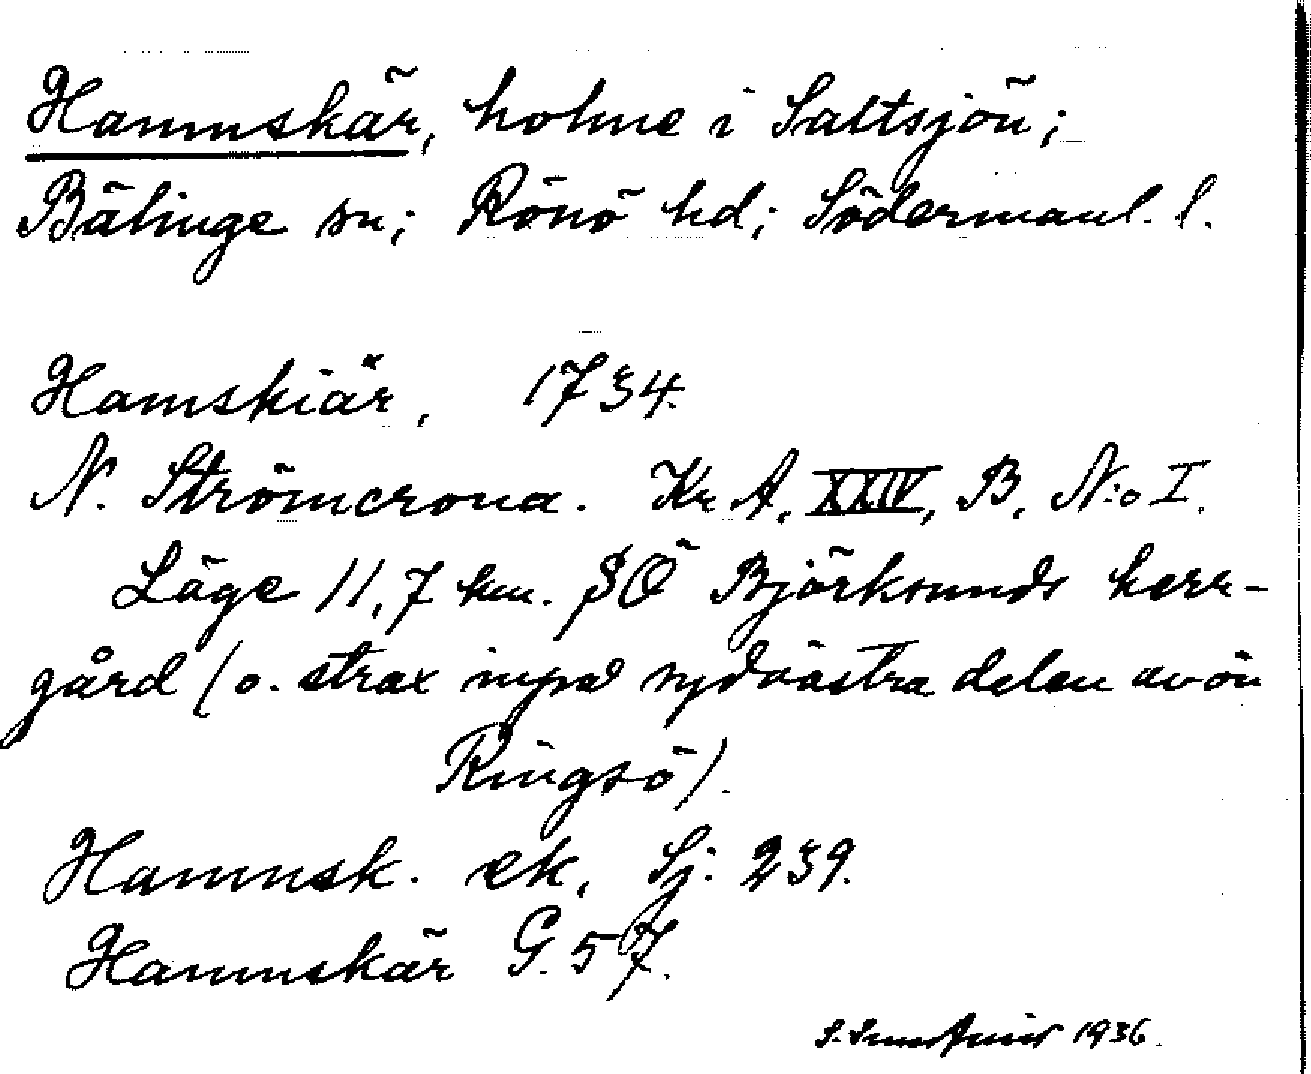 Hammskär, holme i Saltsjön;
Bälinge sn; Rönö hd; Södermanl. l.
Hamskiär, 1734.
N. Strömcrona. Kr A, XXIV, B, N:o I.
Läge 11,7 km. SÖ Björksunds herr-
gård (o. strax inpå sydvästra delen av ön
Ringsö).
Hammsk. ek, Sj: 239.
Hammskär G. 57.
S. 1936.